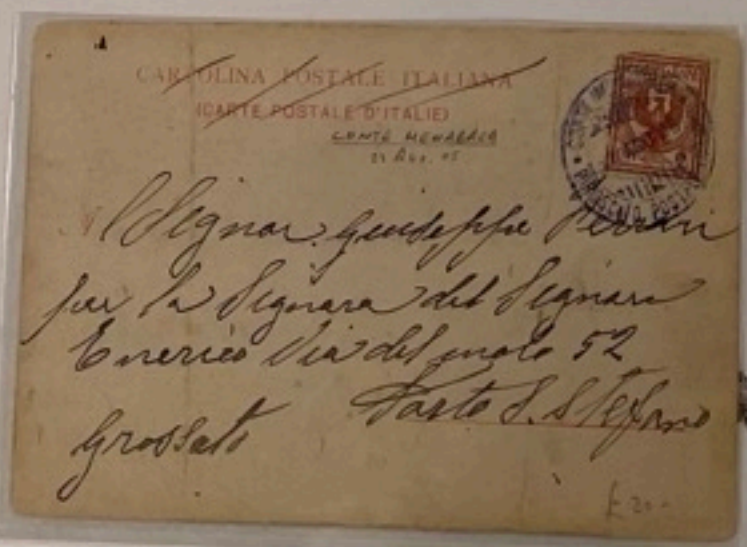 CARTOLINA POSTALE ITALIANA
(CARTE POSTALE D'ITALIE)
CONTE MENABREA
21 AGO. 05
Signor Giuseppe
per la Signora del Signore
Enerico Via del molo 52
Porto S. Stefano
Grosseto
£ 20-